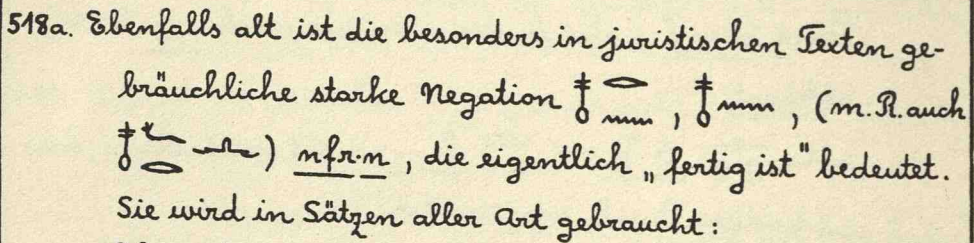 518a. Ebenfalls alt ist die besonders in juristischen Texten ge-
bräuchliche starke Negation 𓄤𓂋𓈖, 𓄤𓈖, (m. R. auch
𓄤𓆑𓂋𓂜) nfr·n, die eigentlich „fertig ist" bedeutet.
Sie wird in Sätzen aller Art gebraucht: